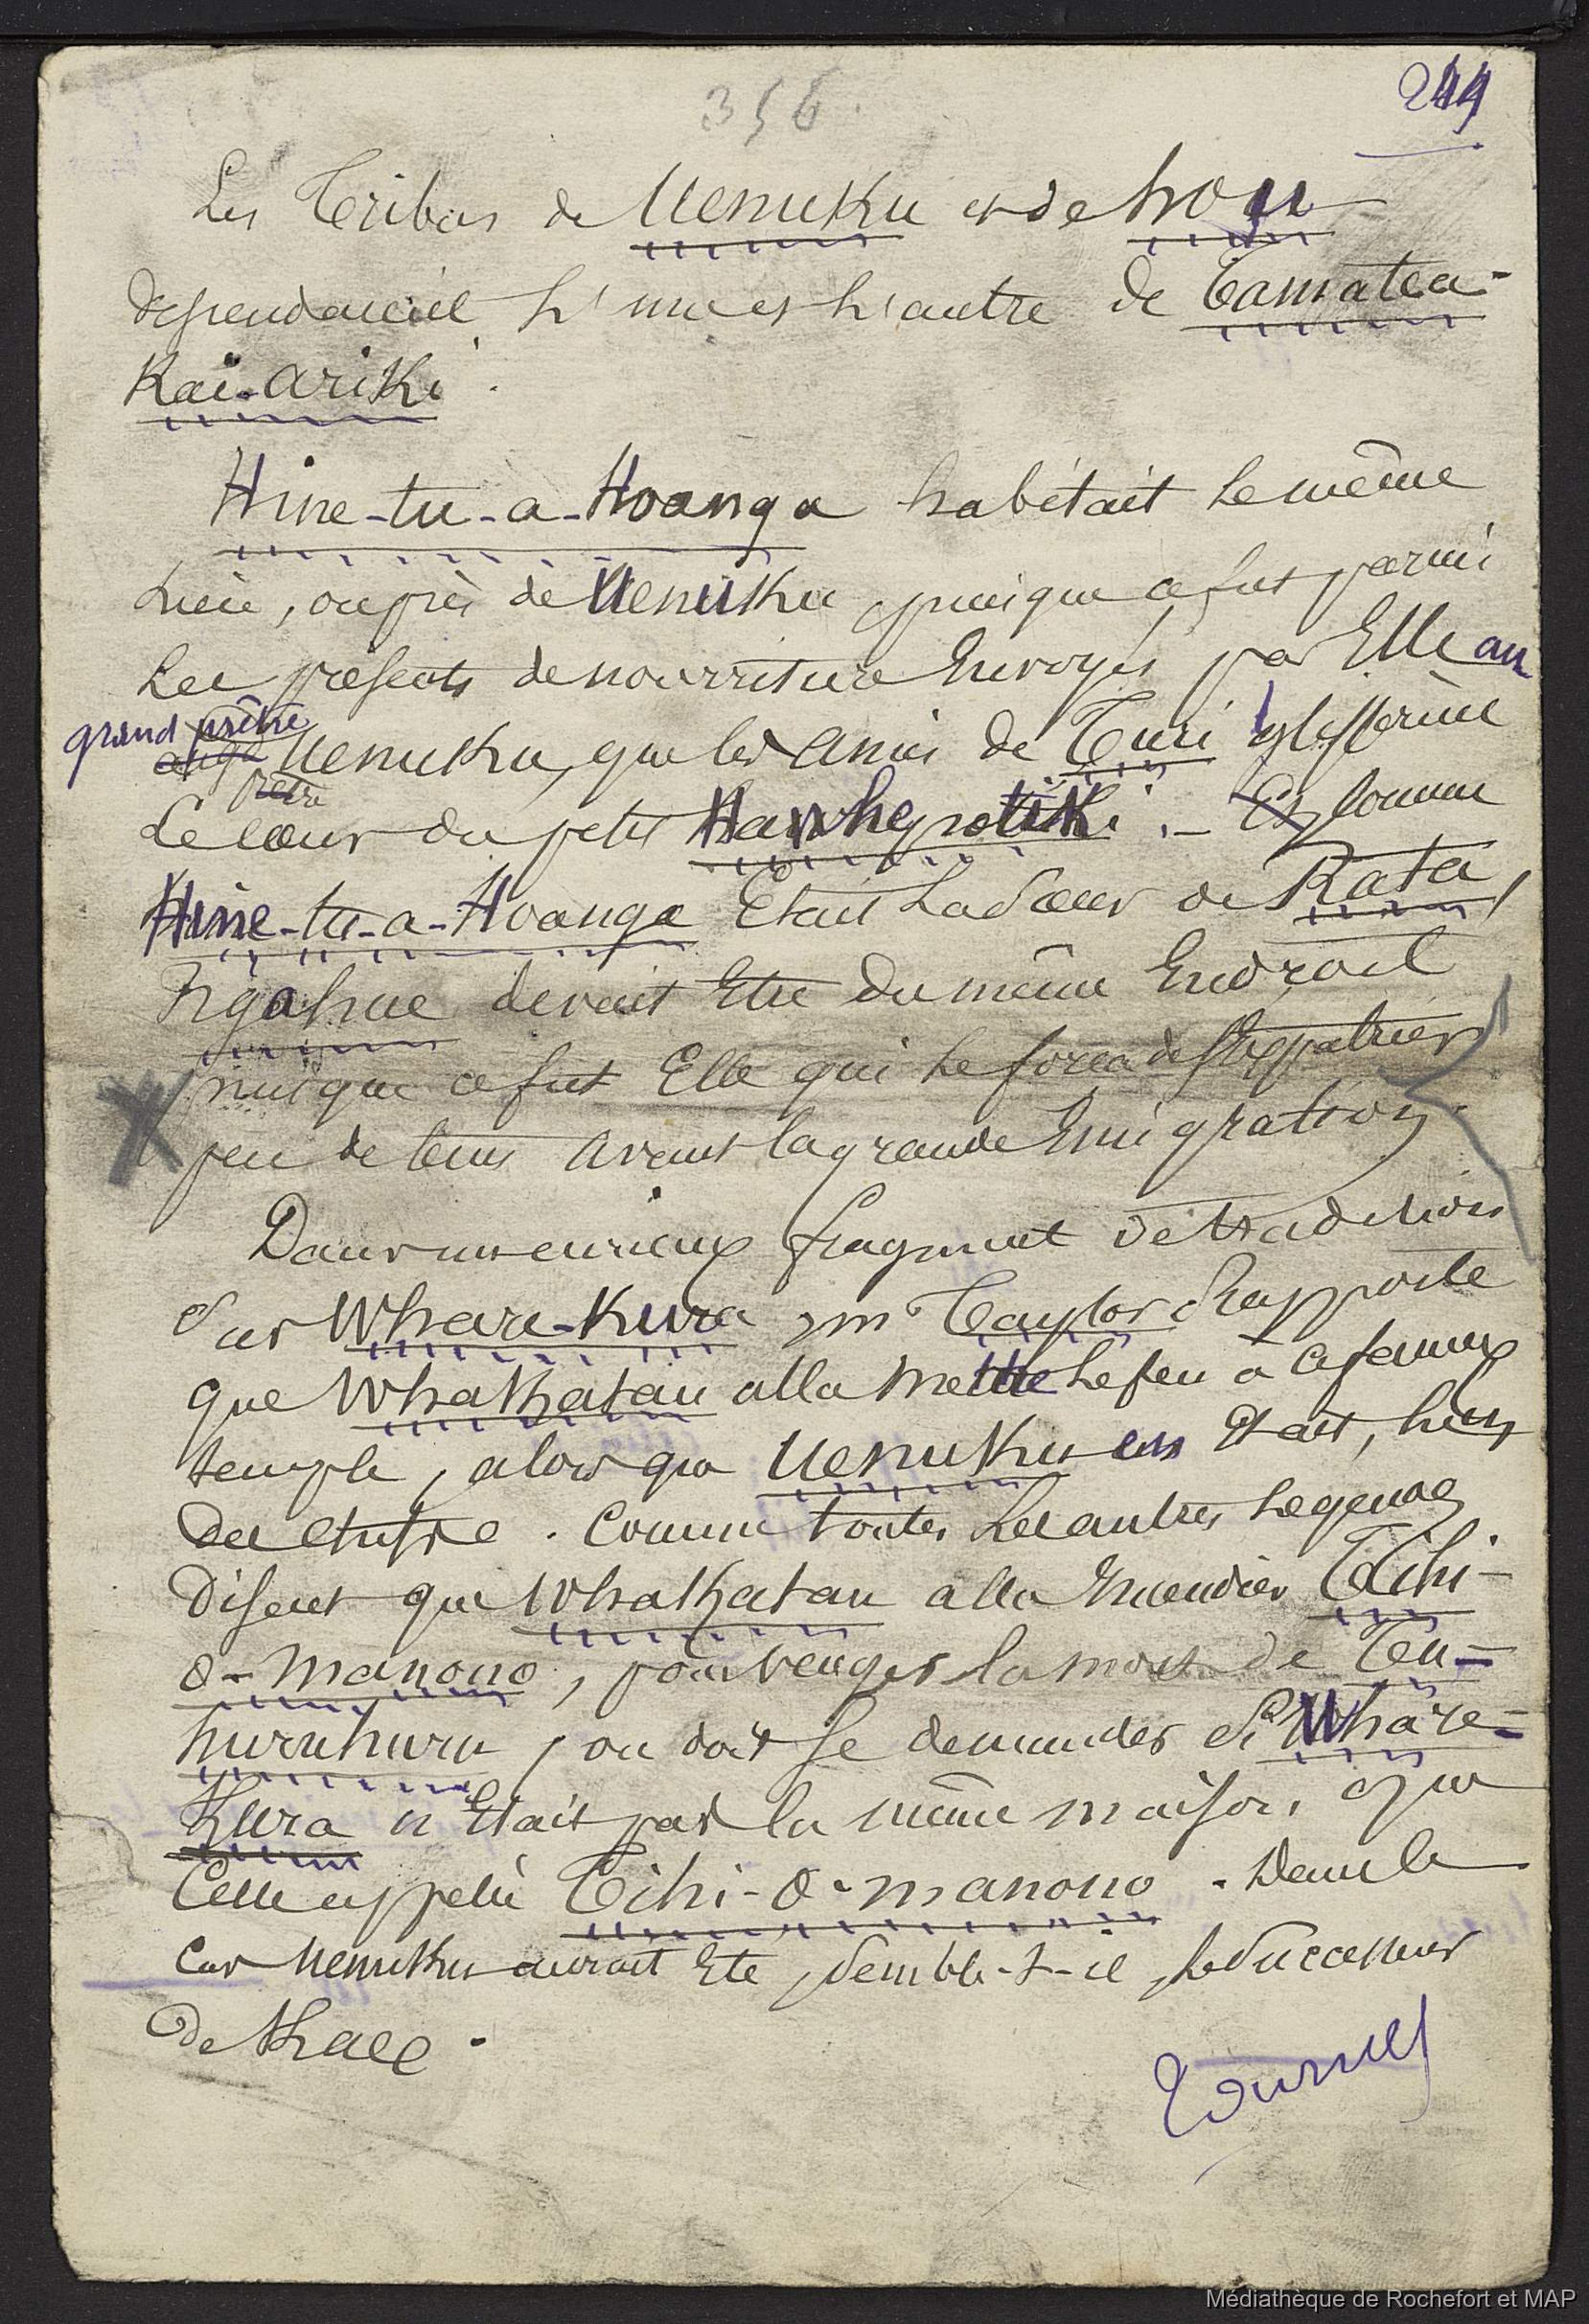 356.
244
Les Tribus de Uenuku et de hoiu
dépendaient l'une et l'autre de Tamatea-
Kaï-ariki.
Hine-tu-a-Hoanga habitait le même
lieu, ou près de Uenuku, puisque ce fut parmi
les présents de nourriture Envoyés par Elle au
grand prêtre
Uenuku, que les amis de Turi glissèrent
prêtre
le cœur du petit Hawhepotiki. - Et comme
Hine-tu-a-Hoanga Etait la sœur de Rata,
Ngahue devait Etre du même Endroit
puisque ce fut Elle qui le força de s'Expatrier
peu de tems avant la grande Emigration.
Dans un curieux fragment de tradition
sur Whare-Kura, mr Taylor rapporte
que Whakatau alla mettre le feu à ce fameux
temple, alors que Uenuku en Etait, lui,
de chefs. Comme toutes les autres légendes
disent que Whakatau alla Incendier Tihi-
o-manono, pour venger la mort de Tu-
huruhuru, on doit se demander si Whare-
Kura n'Etait pas la même maison que
Celle appelée Tihi-o-manono. Dans le
Cas Uenuku aurait Eté, semble-t-il, le successeur
de Kae.
Tournez
Médiathèque de Rochefort et MAP